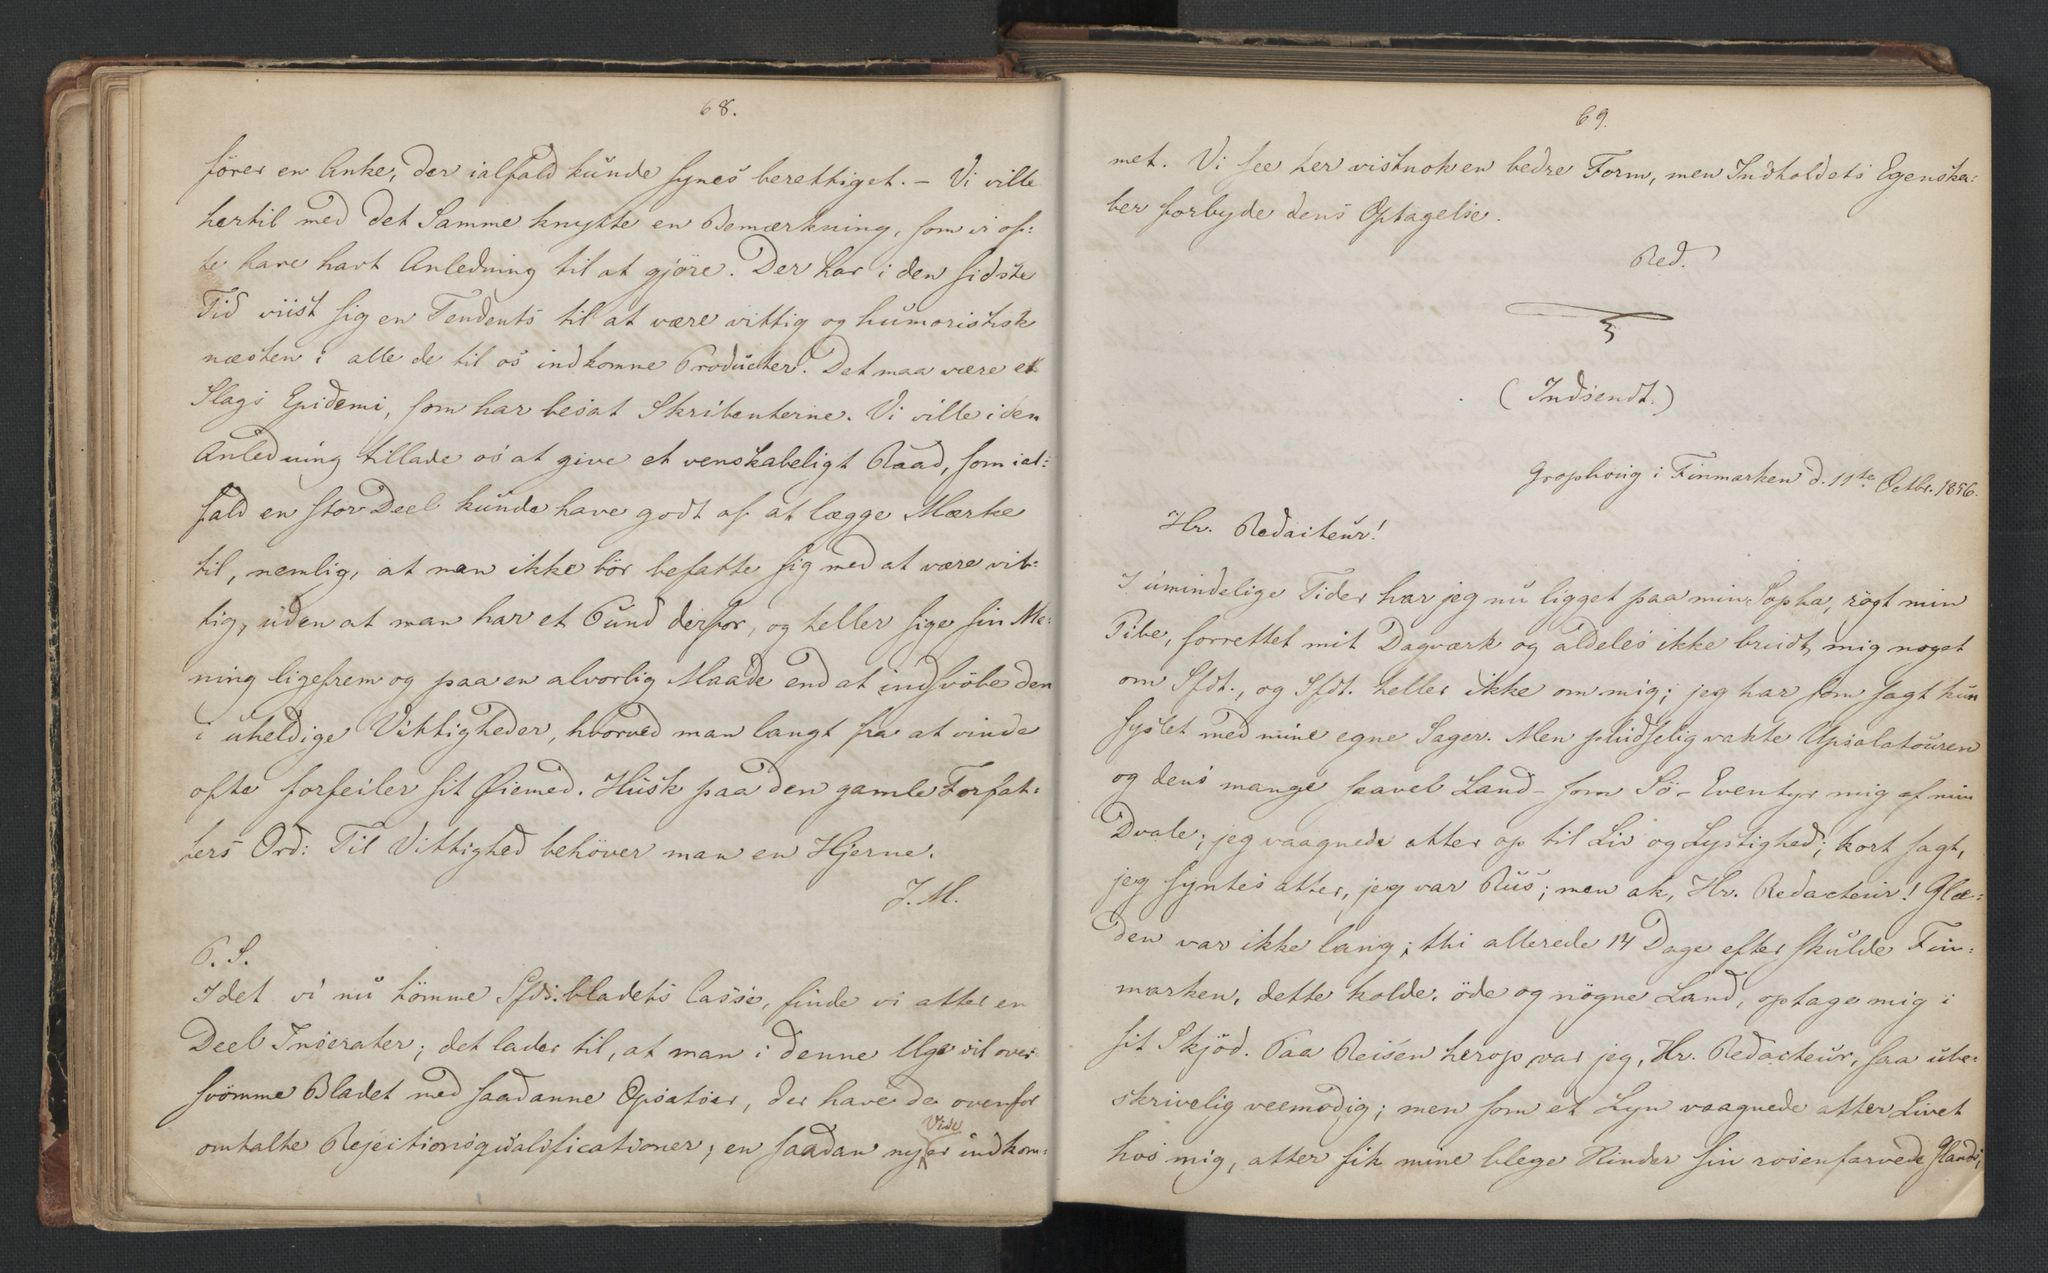 68.
fører en Anke, der ialfald kunde synes berettiget. – Vi ville
hertil med det Samme knytte en Bemærkning, som vi of-
te have havt Anledning til at gjøre. Der har i den sidste
Tid viist sig en Tendents til at være vittig og humoristisk
næsten i alle de til os indkomne Producter. Det maa være et
Slags Epidemi, som har besat Skribenterne. Vi ville i den
Anledning tillade os at give et venskabeligt Raad, som ial-
fald en stor Deel kunde have godt af at lægge Mærke
til, nemlig, at man ikke bör befatte sig med at være vit-
tig, uden at man har et Pund derfor, og heller sige sin Me-
ning ligefrem og paa en alvorlig Maade end at indsvöbe den
i uheldige Vittigheder, hvorved man langt fra at vinde
ofte forfeiler sit Øiemed. Husk paa den gamle Forfat-
ters Ord: Til Vittighed behöver man en Hjerne.
J. M.
P. S.
Idet vi nu tömme Sfds.bladets Casse, finde vi atter en
Deel Inserater; det lader til, at man i denne Uge vil over-
svömme Bladet med saadanne Opsatser, der have de ovenfor
omtalte Rejectionsqualificationer; en saadan nys er Vise indkom-
69.
met. Vi see her vistnok en bedre Form, men Indholdets Egenska-
ber forbyde dens Optagelse.
Red.
(Indsendt.)
Grophoug i Finmarken d. 11te Octbr. 1856.
Hr. Redacteur!
I umindelige Tider har jeg nu ligget paa min Sopha, rögt min
Pibe, forrettet mit Dagværk og aldeles ikke brudt mig noget
om Sfdt., og Sfdt. heller ikke om mig; jeg har som sagt kun
syslet med mine egne Sager. Men pludselig vakte Upsalatouren
og dens mange saavel Land- som Sö-Eventyr mig af min
Dvale; jeg vaagnede atter op til Liv og Lystighed; kort sagt,
jeg syntes atter, jeg var Rus; men ak, Hr. Redacteur! Glæ-
den var ikke lang; thi allerede 14 Dage efter skulde Fin-
marken, dette kolde, öde og nögne Land, optage mig i
sit Skjöd. Paa Reisen herop var jeg, Hr. Redacteur, saa ube-
skrivelig veemodig; men som et Lyn vaagnede atter Livet
hos mig, atter fik mine blege Kinder sin rosenfarvede Glands,